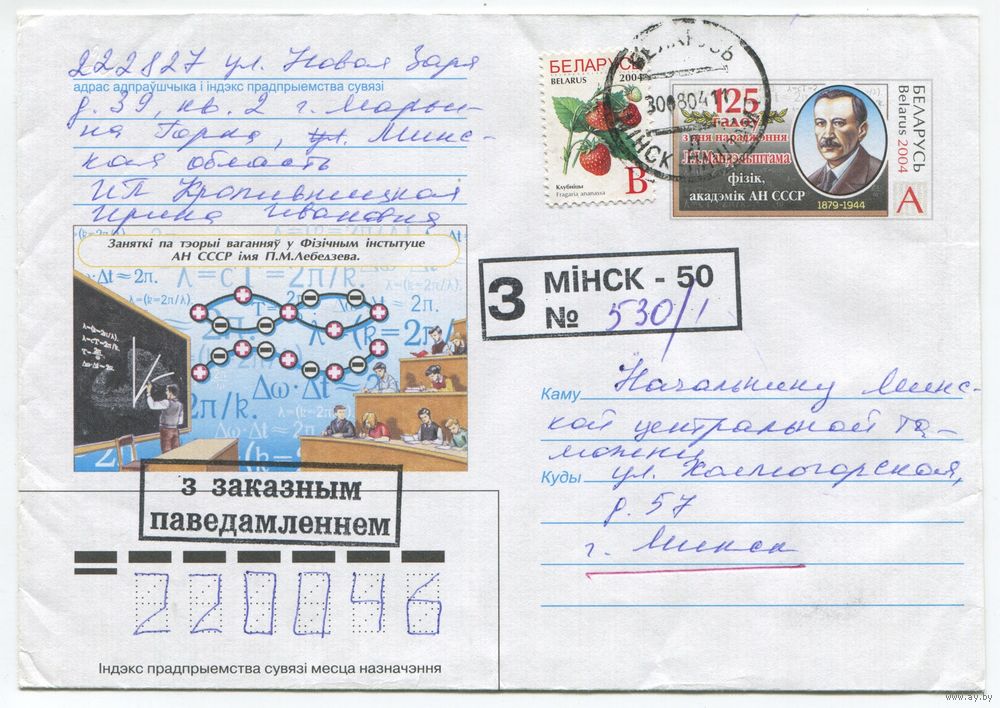 222827 ул. Новая Заря
адрас адпраўшчыка і індэкс прадпрыемства сувязі
д. 39, кв. 2 г. Марьи-
на Горка, Минс-
кая область
ИП Кропивницкая
Ирина Ивановна
БЕЛАРУСЬ
BELARUS 2004
Клубніцы
Fragaria ananassa
B
БЕЛАРУСЬ
300804 11
МІНСК
125
гадоў
з дня нараджэння
Л.І.Мандэльштама
фізік,
акадэмік АН СССР
1879-1944
БЕЛАРУСЬ
Belarus 2004
A
Заняткі па тэорыі ваганняў у Фізічным інстытуце
АН СССР імя П.М.Лебедзева.
З МІНСК - 50
№ 530/1
Каму Начальнику Минс-
кой центральной та-
можни
Куды ул. Холмогорская,
д. 57
г. Минск
з заказным
паведамленнем
220046
Індэкс прадпрыемства сувязі месца назначэння
www.ay.by